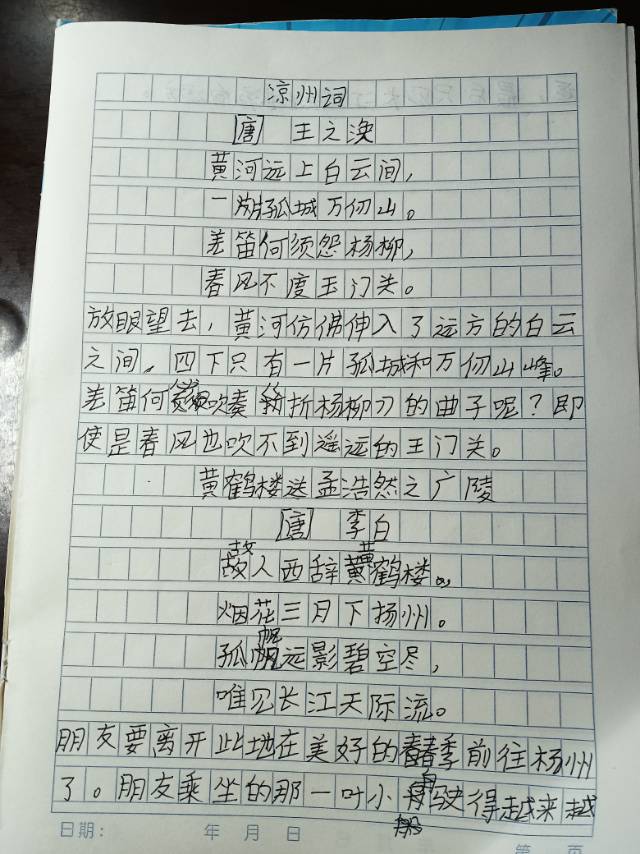 凉州词
[唐] 王之涣
黄河远上白云间，
一片孤城万仞山。
羌笛何须怨杨柳，
春风不度玉门关。
放眼望去，黄河仿佛伸入了远方的白云
之间，四下只有一片孤城和万仞山峰。
羌笛何须吹奏折杨柳的曲子呢？即
使是春风也吹不到遥远的玉门关。
黄鹤楼送孟浩然之广陵
[唐] 李白
故人西辞黄鹤楼。
烟花三月下扬州。
孤帆远影碧空尽，
唯见长江天际流。
朋友要离开此地在美好的春季前往杨州
了。朋友乘坐的那一叶小舟驶得越来越
日期： 年 月 日
第 页